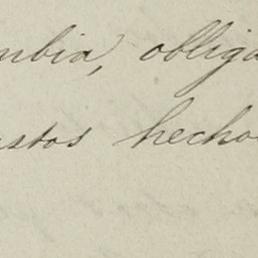 mbia, obliga
stos hecho